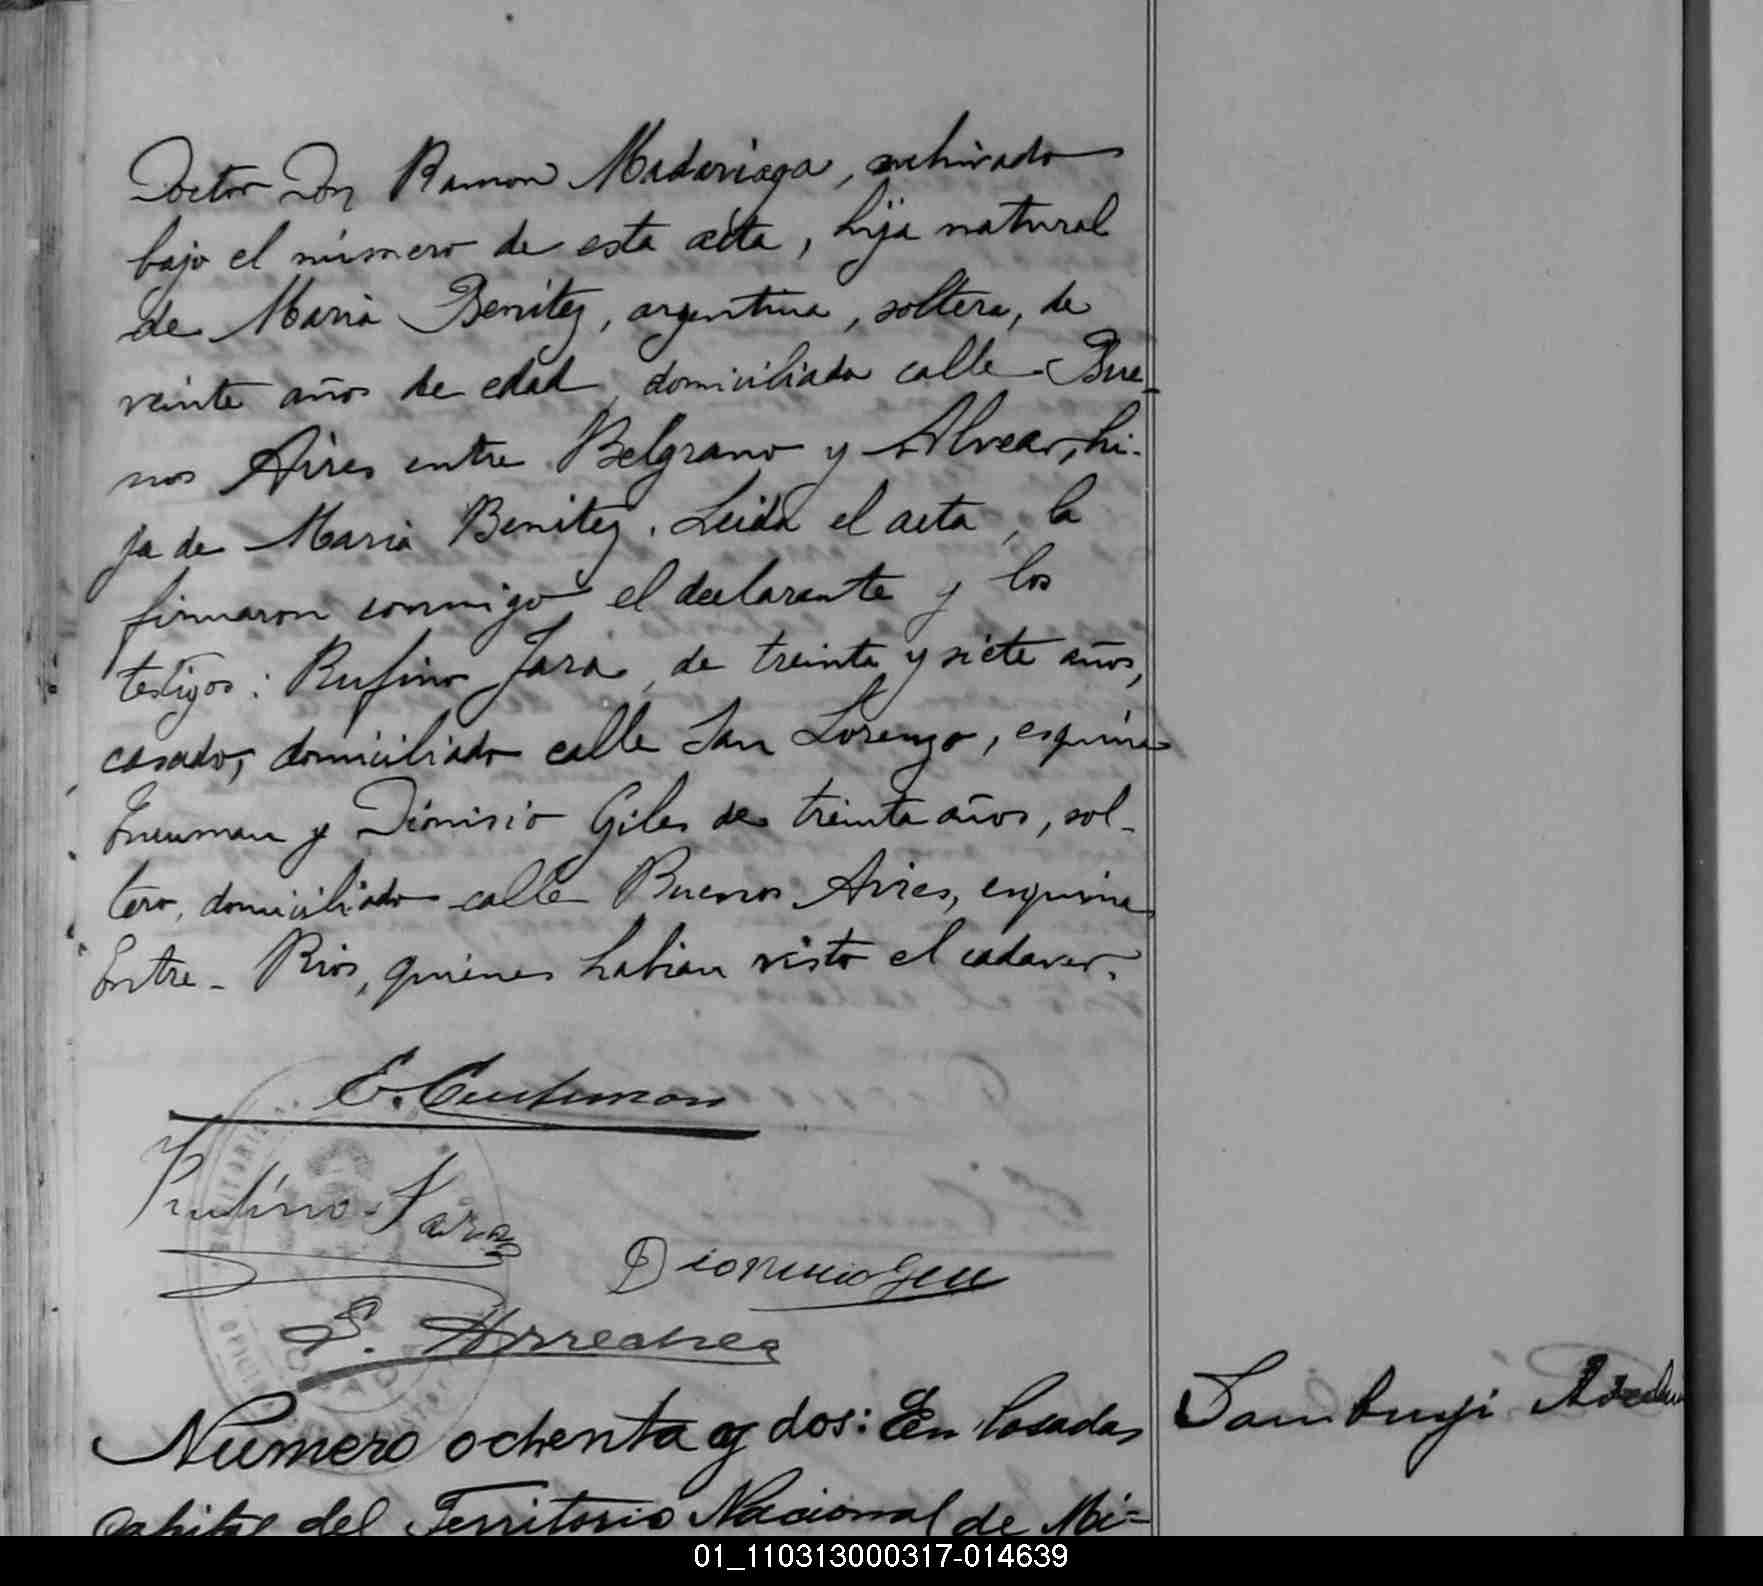 Doctor Don Ramon Madariaga, archivado
bajo el número de esta acta, hija natural
de Maria Benitez, argentina, soltera, de
veinte años de edad, domiciliada calle Bue-
nos Aires entre Belgrano y Alvear, hi-
ja de Maria Benitez. Leida el acta, la
firmaron conmigo el declarante y los
testigos: Rufino Jara, de treinta y siete años,
casado, domiciliado calle San Lorenzo, esquina
y Dionisio Giles de treinta años, sol-
tero, domiciliado calle Buenos Aires, esquina
Entre-Rios, quienes habian visto el cadaver.
Rufino Jara
Dionisio
Numero ochenta y dos: En Posadas
Capital del Territorio Nacional de Mi=
01_110313000317-014639